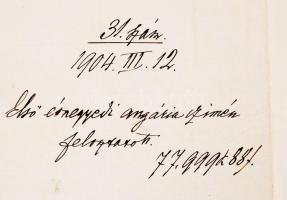 31. szám.
1904. III. 12.
Első évnegyedi angária címén
felosztatott.
77.999 k 88 f.